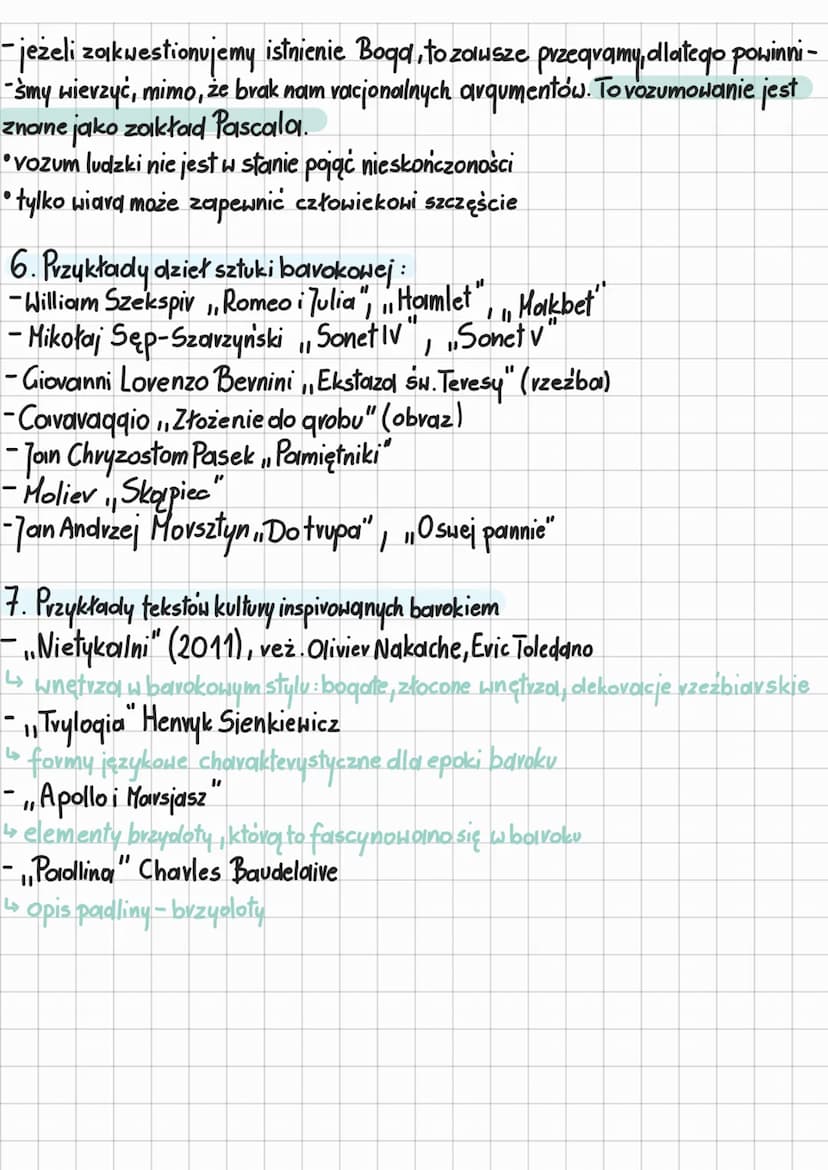 - jeżeli zakwestionujemy istnienie Boga, to zawsze przegramy, dlatego powinni -
- śmy wierzyć, mimo, że brak nam racjonalnych argumentów. To rozumowanie jest
znane jako zakład Pascala.
• rozum ludzki nie jest w stanie pojąć nieskończoności
• tylko wiara może zapewnić człowiekowi szczęście
6. Przykłady dzieł sztuki barokowej:
- William Szekspir „Romeo i Julia", „Hamlet", „Makbet"
- Mikołaj Sęp-Szarzyński „Sonet IV", „Sonet V"
- Giovanni Lorenzo Bernini „Ekstaza św. Teresy" (rzeźba)
- Caravaggio „Złożenie do grobu" (obraz)
- Jan Chryzostom Pasek „Pamiętniki"
- Molier „Skąpiec"
- Jan Andrzej Morsztyn „Do trupa", „O swej pannie"
7. Przykłady tekstów kultury inspirowanych barokiem
- „Nietykalni" (2011), reż. Olivier Nakache, Eric Toledano
↳ wnętrza w barokowym stylu: bogate, złocone wnętrza, dekoracje rzeźbiarskie
- „Trylogia" Henryk Sienkiewicz
↳ formy językowe charakterystyczne dla epoki baroku
- „Apollo i Marsjasz"
↳ elementy brzydoty, którą to fascynowano się w baroku
- „Padlina" Charles Baudelaire
↳ opis padliny - brzydoty